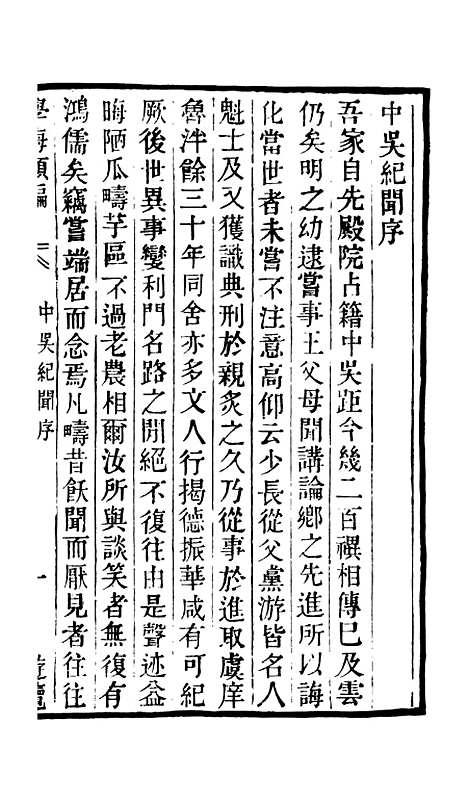 中吳紀聞序
吾家自先殿院占籍中吳距今幾二百禩相傳已及雲
仍矣明之幼逮嘗事王父母聞講論鄉之先進所以誨
化當世者未嘗不注意高仰云少長從父黨游皆名人
魁士及又獲識典刑於親炙之久乃從事於進取虞庠
魯泮餘三十年同舍亦多文人行揭德振華咸有可紀
厥後世異事變利門名路之閒絕不復往由是聲迹益
晦陋瓜疇芋區不過老農相爾汝所與談笑者無復有
鴻儒矣竊嘗端居而念焉凡疇昔飫聞而厭見者往往
學海類編
中吳紀聞序
一